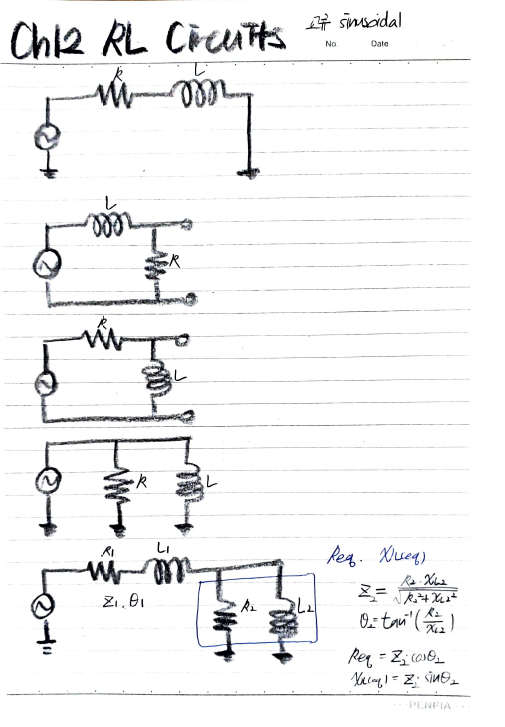 Ch12 RL Circuits
교류 sinusoidal
No. Date
R L
L
R
R
L
R L
R1 L1
Z1. θ1
R2 L2
Req. XL(eq)
Z2 = R2·XL2 / √R2²+XL2²
θ2 = tan⁻¹(R2/XL2)
Req = Z2·cosθ2
XL(eq) = Z2·sinθ2
PENPIA